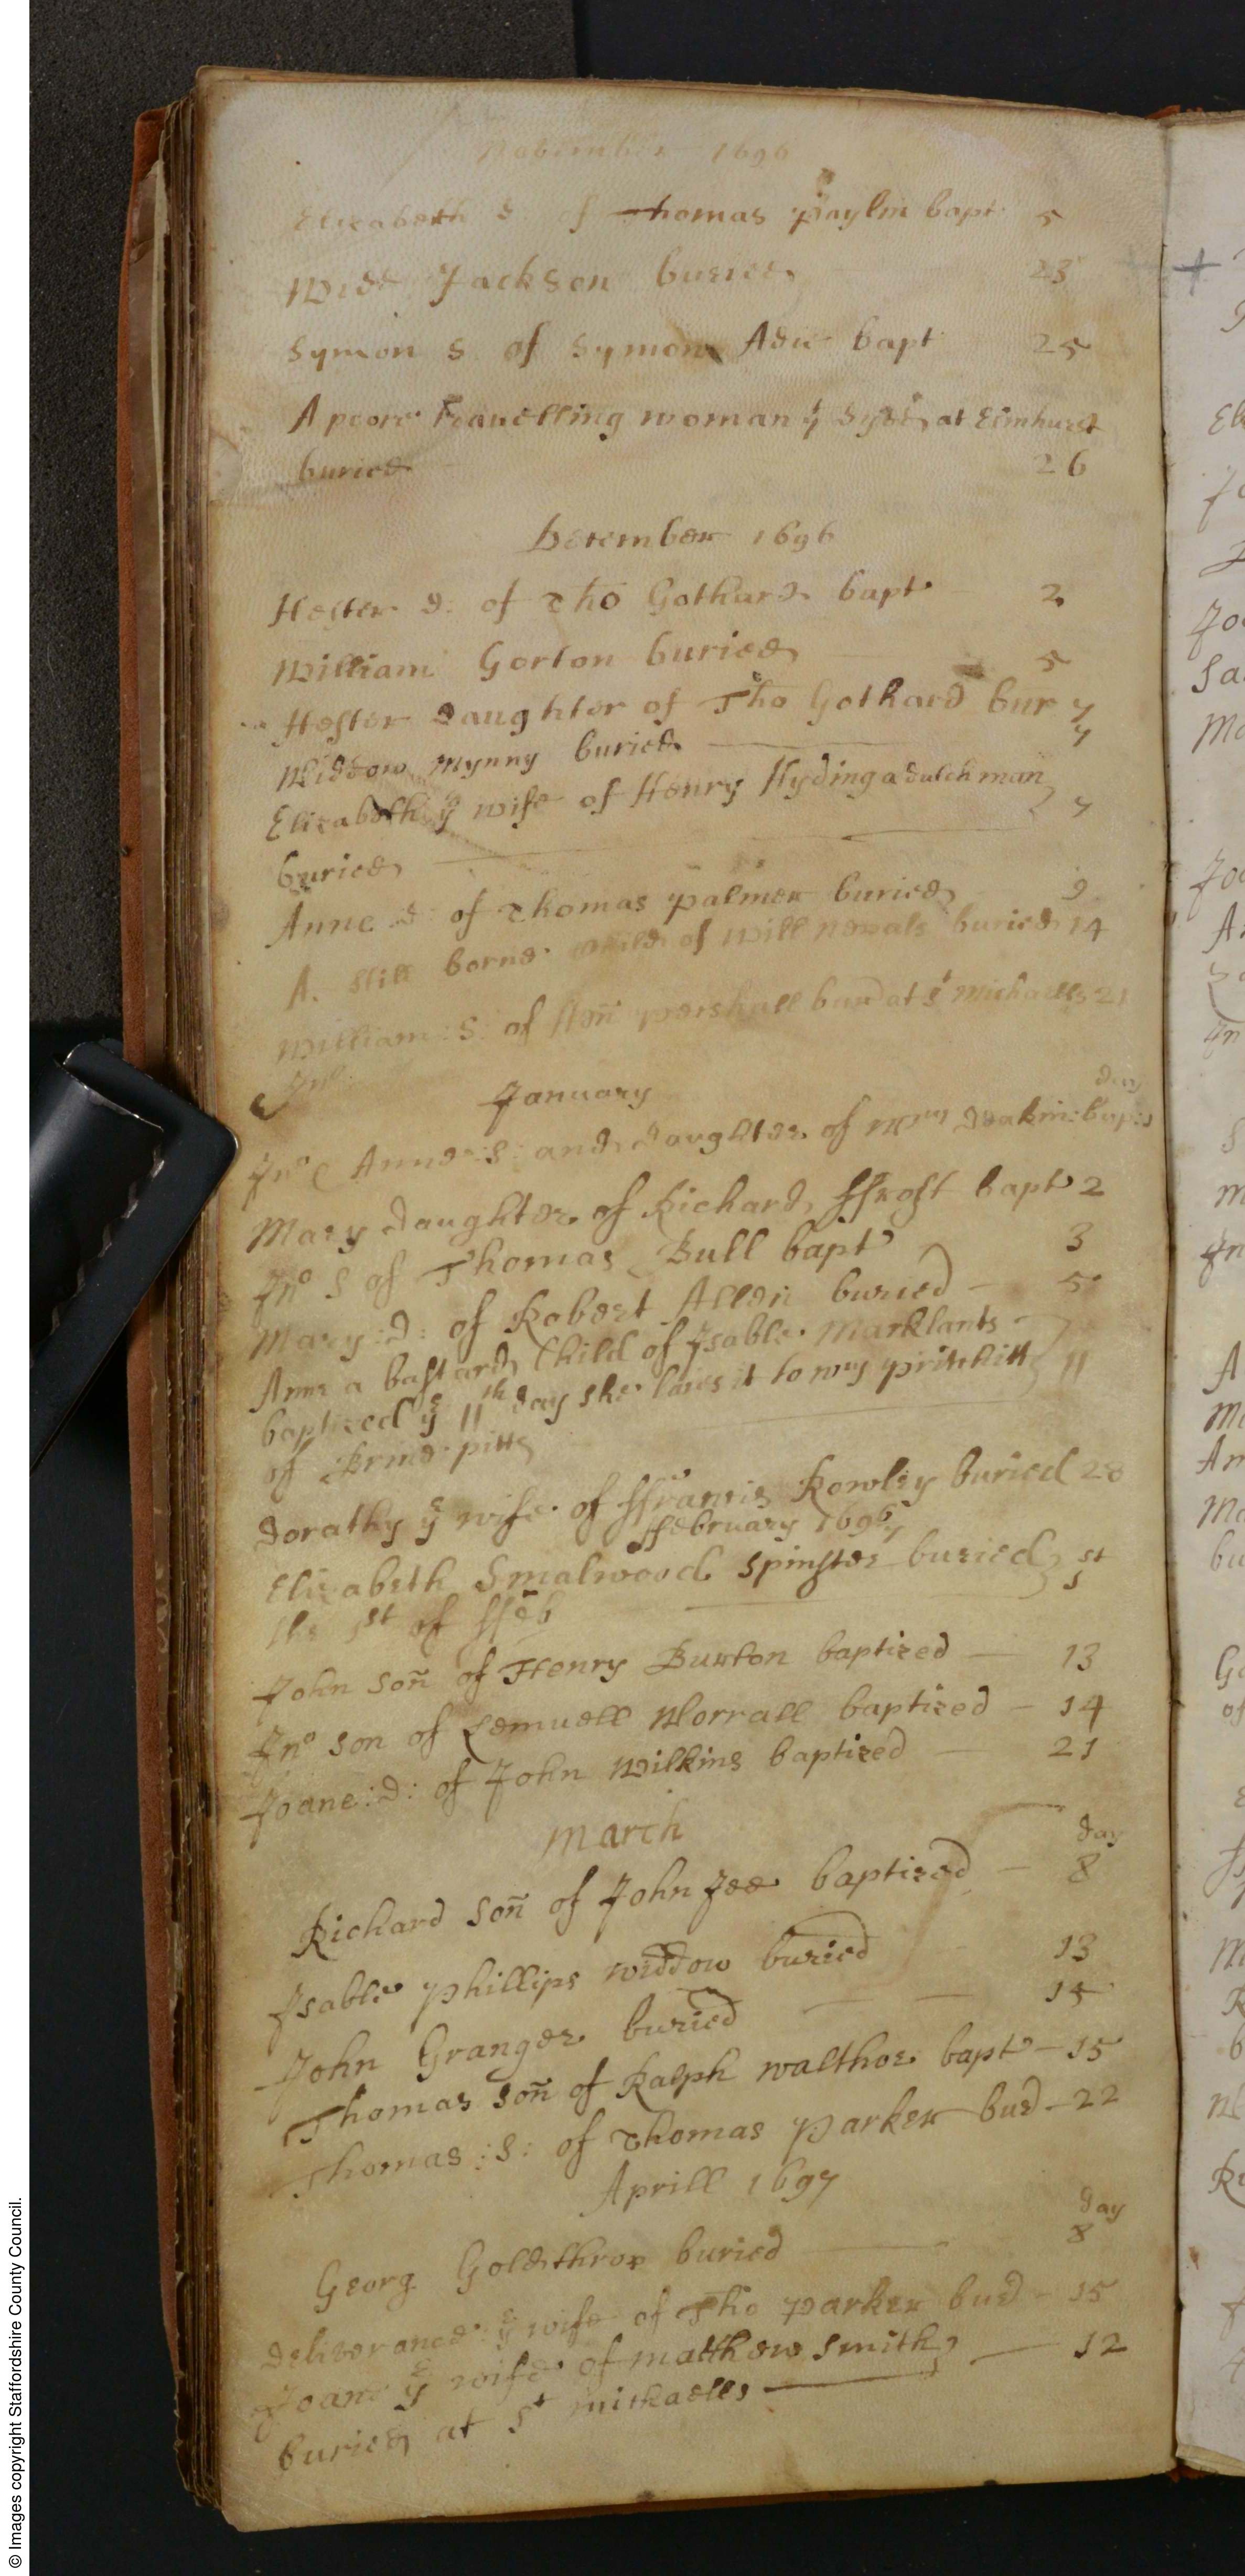 November 1696
Elizabeth d of Thomas Paylin bapt 5
Widd Jackson buried 23
Symon s of Symon Adie bapt 25
A poore Travelling woman yt dyed at Elmhurst
buried 26
December 1696
Hester d: of Tho Gothard bapt 2
William Gorton buried 5
Hester daughter of Tho Gothard bur 7
Widdow Mynny buried 7
Elizabeth ye wife of Henry Hyding a dutchman 7
buried
Anne d: of Thomas Palmer buried 9
A still borne child of Will buried 14
William: S: of Hen Pershall burd at St Michaells 21
Jno
January day
Jno Anne: S: and daughter of Wm Deakin: bapt: 1
Mary daughter of Richard ffrost bapt 2
Jno S of Thomas Bull bapt 3
Mary: d: of Robert Allen buried 5
Anne a bastard Child of Isable Marklants
baptized ye 11th day she laies it to Wm Pritchitt 11
of pitts
Dorathy ye wife of ffrancis Rowley buried 28
ffebruary 1696/7
Elizabeth Smalwood Spinster buried 1st
the 1st of ffeb
John Son of Henry Burton baptized 13
Jno Son of Lemuell Worrall baptized 14
Joane: d: of John Wilkins baptized 21
March
day
Richard Son of John Jee baptized 8
Isable Phillips widdow buried 13
John Granger buried 15
Thomas Son of Ralph Walther bapt 15
Thomas: S: of Thomas Parker burd 22
Aprill 1697
day
Georg Goldthrop buried 8
Deliverance ye wife of Tho Parker burd 15
Joane ye wife of Matthew Smith 12
buried at St Michaells
© Images copyright Staffordshire County Council.